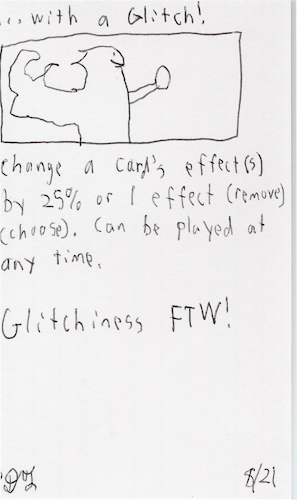 ...with a Glitch!
Change a card's effect(s)
by 25% or 1 effect (remove)
(choose). Can be played at
any time.
Glitchiness FTW!
8/21